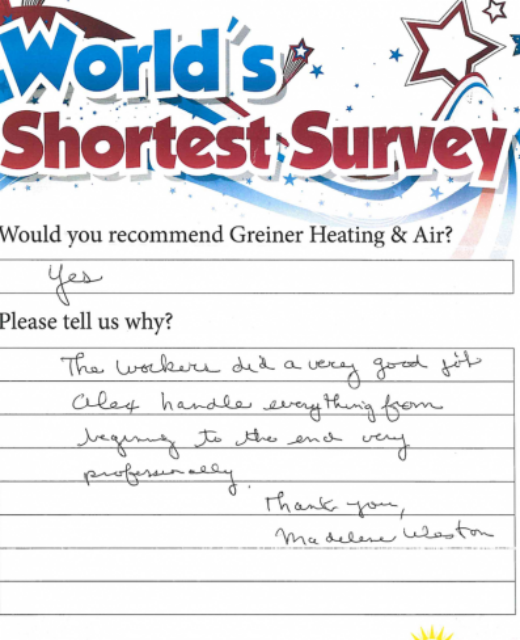 World's
Shortest Survey
Would you recommend Greiner Heating & Air?
Yes
Please tell us why?
The workers did a very good job
Alex handle everything from
begining to the end very
professionally.
Thank you,
Madelene Weston